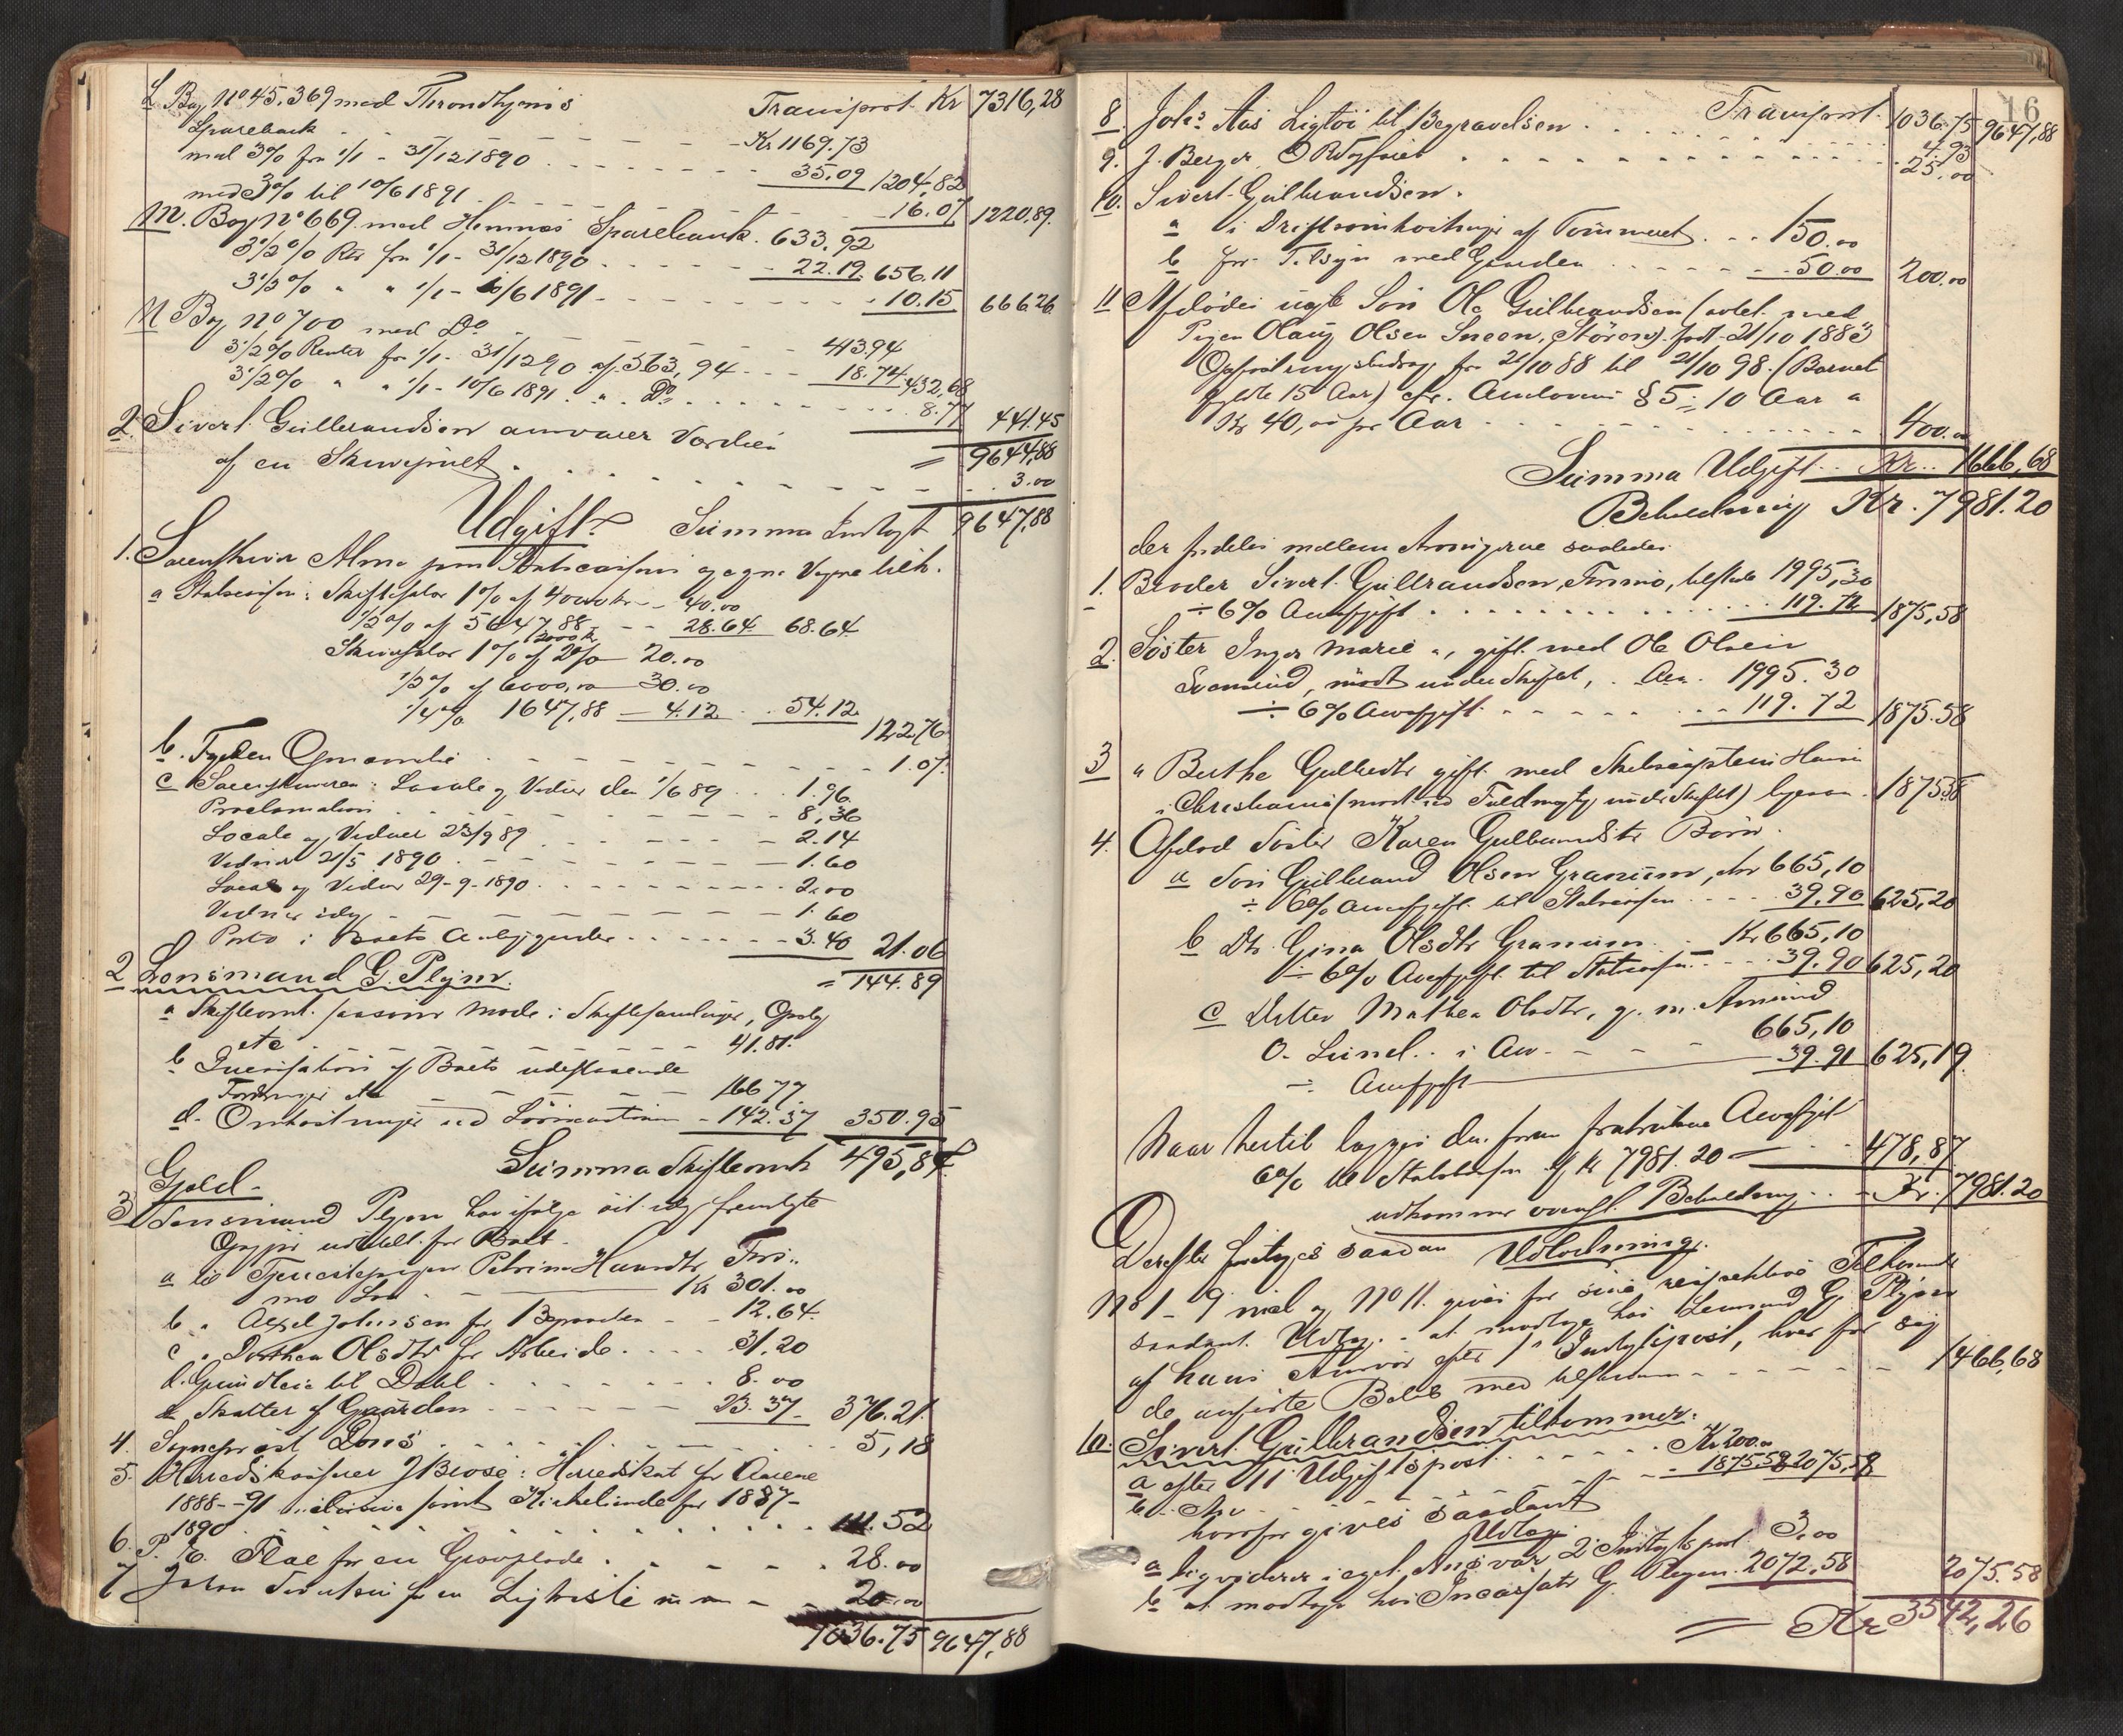 L Bog No 45,369 med Throndhjems Transport Kr 7316,28
Sparebank - - - - Kr 1169.73
med 3% fra 1/1 - 31/12 1890 - - - 35.09 1204,82
med 3% til 10/6 1891 - - - 16.07 1220,89
M. Bog No 669 med Hemnes Sparebank. 633,92
3 1/2 % Rtr fra 1/1 - 31/12 1890 - - - 22.19 656.11
3 1/2 % " " 1/1 - 10/6 1891 - - - 10.15 666,26
N Bog No 700 med Do - - - 413.94
3 1/2 % Renter fra 1/1 - 31/12 90 af 563,94 - - - 18.74 432,68
3 1/2 % " " 1/1 - 10/6 1891 " Do - - - 8.77 441.45
2. Sivert Gulbrandsen ansvarer Værdien = 9644,88
af en - - - 3.00
Udgift. Summa Indtægt 9647,88
1. Sorenskriver Alme paa Statscassens og egne Vegne tilk.
a Statscassen: Skiftesalær 1% af 4000 kr - - 40.00
1/2 % af 5647,88 - - 28.64 68.64
Skrivesalær 1% af 2000 kr 20.00
1/2 % af 6000,00 - 30.00
1/4 % 1647,88 - 4.12 54.12
122.76
b. Fogden - - - 1.07
c Sorenskriveren: Locale og Vidner den 1/6 89 - - 1.96
Proclamation - - - 8,36
Locale og Vidner 23/9 89 - - - 2.14
Vidner 21/5 1890 - - - 1.60
Locale og Vidner 29-9-1890 - - - 2.00
Vidner idag - - - 1.60
Porto i Boets Anliggender - - - 3.40 21.06
2 Lensmand G. Plejm. = 144.89
a Skifteomk. saasom Møde i Skiftesamlinger,
etc - - - 41.81
b Incassation af Boets udestaaende
Fordringer etc - - - 166 77
d. Omkostninger ved - 142.37 350.95
Summa Skifteomk 495,84
Gjæld -
3 Lensmand Plejm har ifølge idag fremlagte
Opgjør udbetalt for Boet -
a til Tjenestepigen
Løn - - - Kr 301.00
b " Axel Johnsen for - - 12.64
c " Dorthea Olsdtr for Arbeide - - - 31.20
d. Grundleie til Dahl - - - 8.00
e Skatter af Gaarden - - - 23.37 376.21
4. Sogneprest Dons - - - 5,18
5. Herredskasserer J Brose: Herredskat for Aarene
1888 - 91 samt for 1887 -
1890 - - - 111.52
6. P. E. for en Gravplade - - - 28.00
7 Johan for en Ligkiste - - 20.00
1036.75 9647,88
16
Transport. 1036.75 9647,88
8. Johs Aas Ligtøi til Begravelsen - - - 4.93
9. J. Berger - - - 25.00
10. Sivert Gulbrandsen.
a i Driftsomkostninger af Tømmeret - - 150.00
b for Tilsyn med Gaarden - - - 50.00 200.00
11 Afdødes uægte Søn Ole Gulbrandsen (avlet med
Pigen Olaug Olsen Sneen, Støren) født 21/10 1883
Opfostringsbidrag fra 21/10 88 til 21/10 98 (Barnet
fyldte 15 Aar) cfr. Arveloven § 5 - 10 Aar a
Kr 40,00 pr Aar - - - 400.00
Summa Udgift - - Kr - 1666,68
Beholdning Kr. 7981.20
der fordeles mellem Arvingerne saaledes
1. Broder Sivert Gulbrandsen, tilstede 1995,30
÷ 6% Arveafgift - - - 119.72 1875,58
2. Søster Inger Marie ", gift med Ole Olsen
mødt under Skiftet, - Arv 1995.30
÷ 6% Arveafgift - - - 119.72 1875.58
3 " Berthe Gulbrdtr gift med Skibscaptein Hansen
i Christiania (mødt ved Fuldmægtig under Skiftet) ligesaa - 1875,58
4. Afdød Søster Karen Gulbrandsdtr Børn.
a Søn Gulbrand Olsen Granum, Arv 665,10
÷ 6% Arveafgift til Statscassen - - - 39.90 625,20
b Dtr. Gina Olsdtr Granum - Kr 665,10
÷ 6% Arveafgift til Statscassen - - - 39.90 625,20
c Datter Mathea Olsdtr, g. m.
O. i Arv - - - 665,10
÷ Arveafgift - 39.91 625,19
Naar hertil lægges den foran fratrukne Arveafgift
6% til Statskassen af Kr 7981.20 - - - 478,87
udkommer ovenst. Beholdning - - Kr. 7981.20
Derefter foretoges saadan Udlodning:
No 1 - 9 incl og No 11. gives for sine respektive Tilkommende
saadant Udlæg: - at modtage hos Lensmand G. Plejm
af hans Ansvar efter 1ste Indtægtspost, hver for sig
de anførte Beløb med tilsammen - - - 1466,68
10. Sivert Gulbrandsen tilkommer:
a efter 11 Udgiftspost - - - Kr 200.00
b. Arv - - - 1875.58 2075,58
hvorfor gives saadant
Udlæg:
a liqviderer i eget Ansvar 2 Indtægtspost 3.00
b at modtage hos Incassator G. Plejm 2072,58 2075.58
= Kr 3542,26